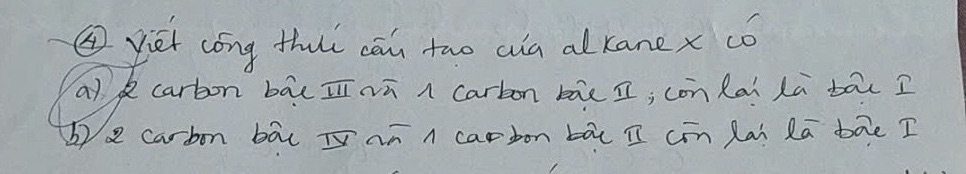 ④ Viết công thức cấu tạo của alkane X có
a) 2 carbon bậc III và 1 carbon bậc II; còn lại là bậc I
b) 2 carbon bậc IV và 1 carbon bậc II còn lại là bậc I